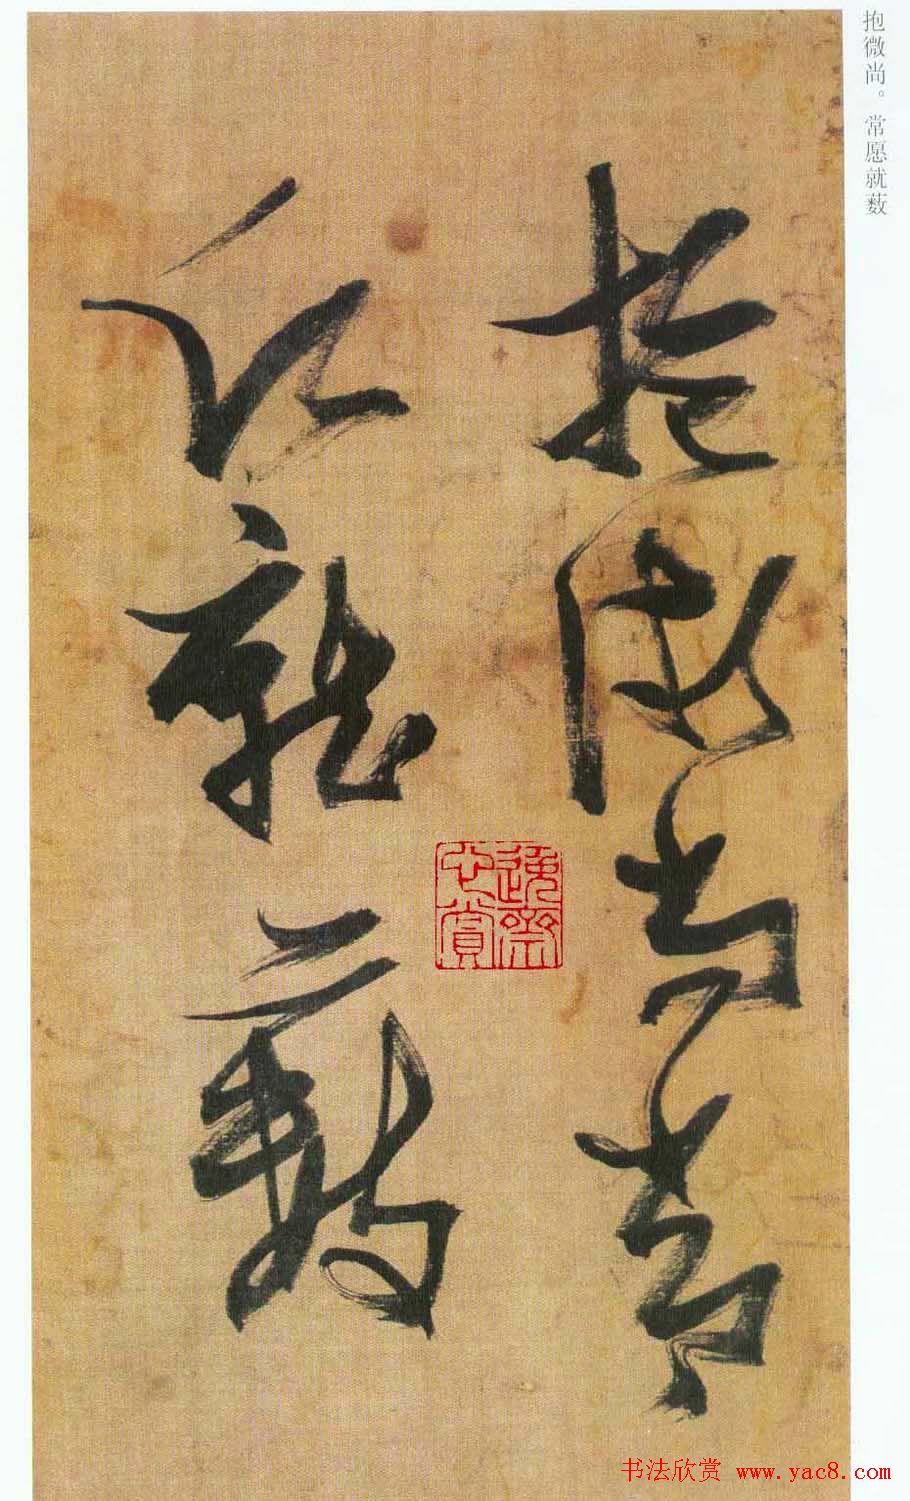 抱微尚。常愿就薮
抱微尚常
願就藪
书法欣赏 www.yac8.com